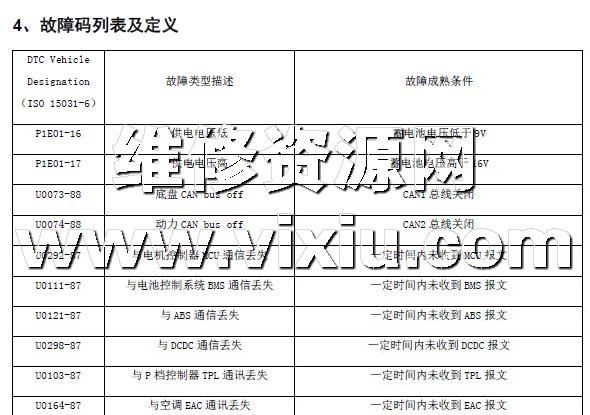 4、故障码列表及定义
DTC Vehicle
Designation
（ISO 15031-6）
故障类型描述
故障成熟条件
P1E01-16
供电电压低
蓄电池电压低于 9V
P1E01-17
供电电压高
蓄电池电压高于 16V
U0073-88
底盘 CAN bus off
CAN1 总线关闭
U0074-88
动力 CAN bus off
CAN2 总线关闭
U0292-87
与电机控制器 MCU 通信丢失
一定时间内未收到 MCU 报文
U0111-87
与电池控制系统 BMS 通信丢失
一定时间内未收到 BMS 报文
U0121-87
与 ABS 通信丢失
一定时间内未收到 ABS 报文
U0298-87
与 DCDC 通信丢失
一定时间内未收到 DCDC 报文
U0103-87
与 P 档控制器 TPL 通讯丢失
一定时间内未收到 TPL 报文
U0164-87
与空调 EAC 通讯丢失
一定时间内未收到 EAC 报文
维修资源网
www.vixiu.com